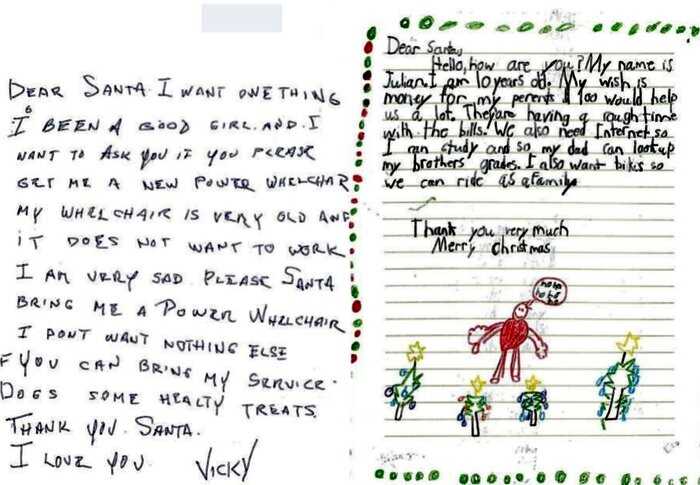 DEAR SANTA. I WANT ONE THING
I BEEN A GOOD GIRL. AND. I
WANT TO ASK YOU IF YOU PLEASE
GET ME A NEW POWER WHELCHAR
MY WHELCHAIR IS VERY OLD AND
IT DOES NOT WANT TO WORK
I AM VERY SAD PLEASE SANTA
BRING ME A POWER WHELCHAIR
I DONT WANT NOTHING ELSE
F YOU CAN BRING MY SERVICE.
DOGS SOME HEALTY TREATS.
THANK YOU. SANTA.
I LOVE YOU. VICKY
Dear Santa,
Hello, how are you? My name is
Julian. I am 10 years old. My wish is
money for my perents 100 would help
us a lot. They are having a rough time
with the bills. We also need Internet so
I can study and so my dad can look up
my brothers grades. I also want bikes so
we can ride as a family
Thank you very much
Merry Christmas
ho ho
ho ho
ho